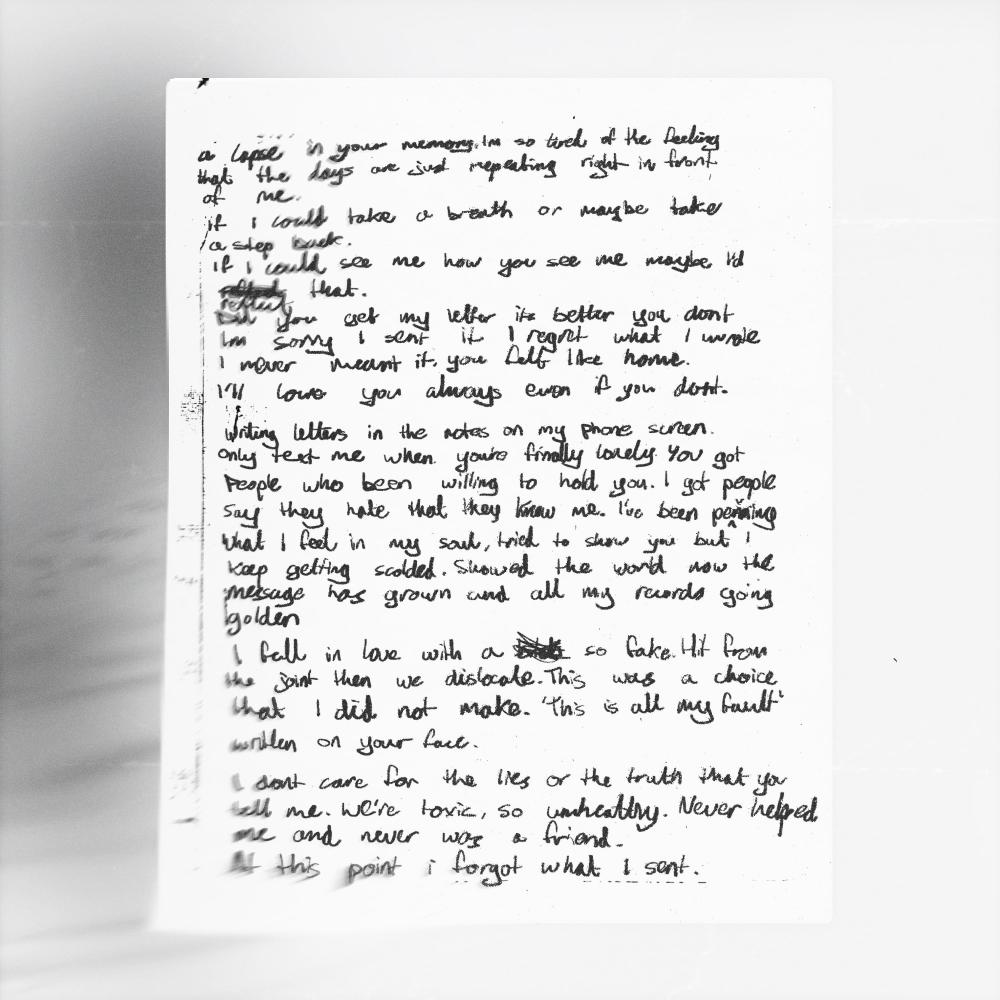 a lapse in your memory. Im so tired of the feeling
that the days are just repeating right in front
of me.
if i could take a breath or maybe take
a step back.
If i could see me how you see me maybe I'd
reflect that.
Did you get my letter its better you dont
Im sorry I sent it I regret what I wrote
I never meant it, you felt like home.
I'll love you always even if you dont.
Writing letters in the notes on my phone screen.
only text me when you're finally lonely. You got
People who been willing to hold you. I got people
say they hate that they know me. I've been penning
What I feel in my soul, tried to show you but I
keep getting scolded. Showed the world now the
message has grown and all my records going
golden
I fell in love with a so fake. Hit from
the joint then we dislocate. This was a choice
that I did not make. 'This is all my fault'
written on your face.
I dont care for the lies or the truth that you
tell me. We're toxic, so unhealthy. Never helped
me and never was a friend.
At this point i forgot what I sent.